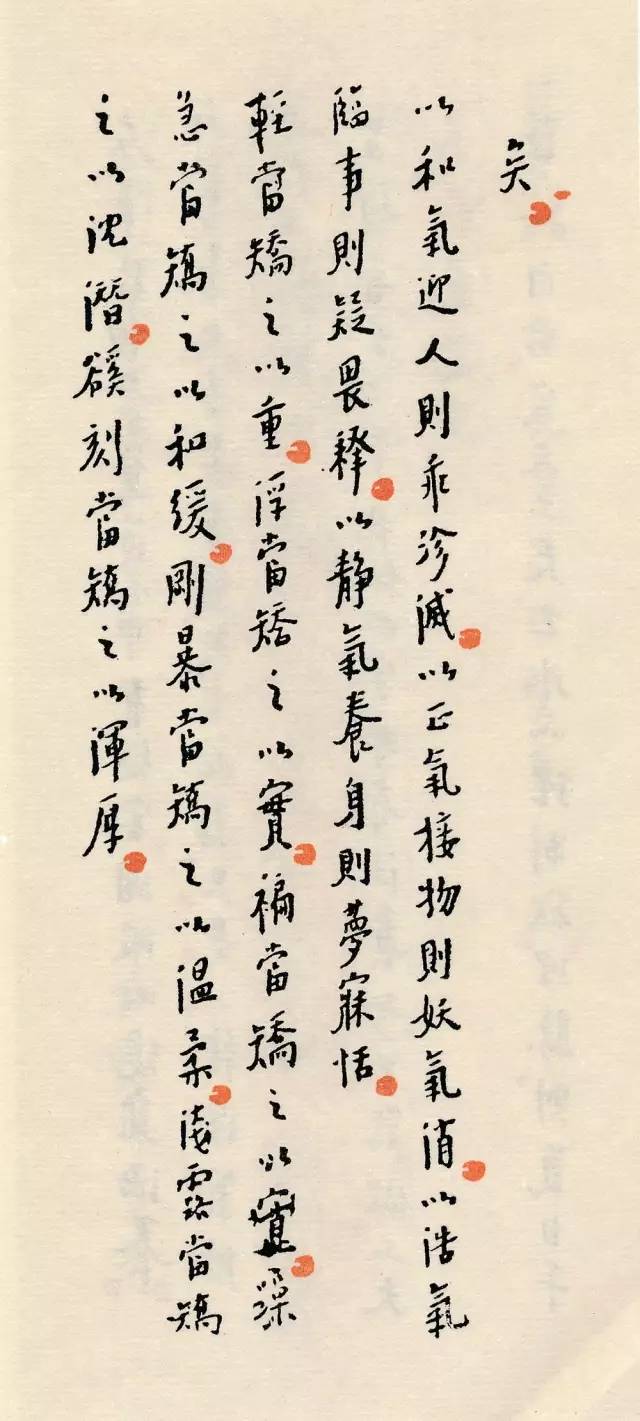 矣
以和氣迎人則乖沴滅以正氣接物則妖氣消以浩氣
臨事則疑畏釋以靜氣養身則夢寐恬
輕當矯之以重浮當矯之以實褊當矯之以寬躁
急當矯之以和緩剛暴當矯之以溫柔淺露當矯
之以沈潛谿刻當矯之以渾厚